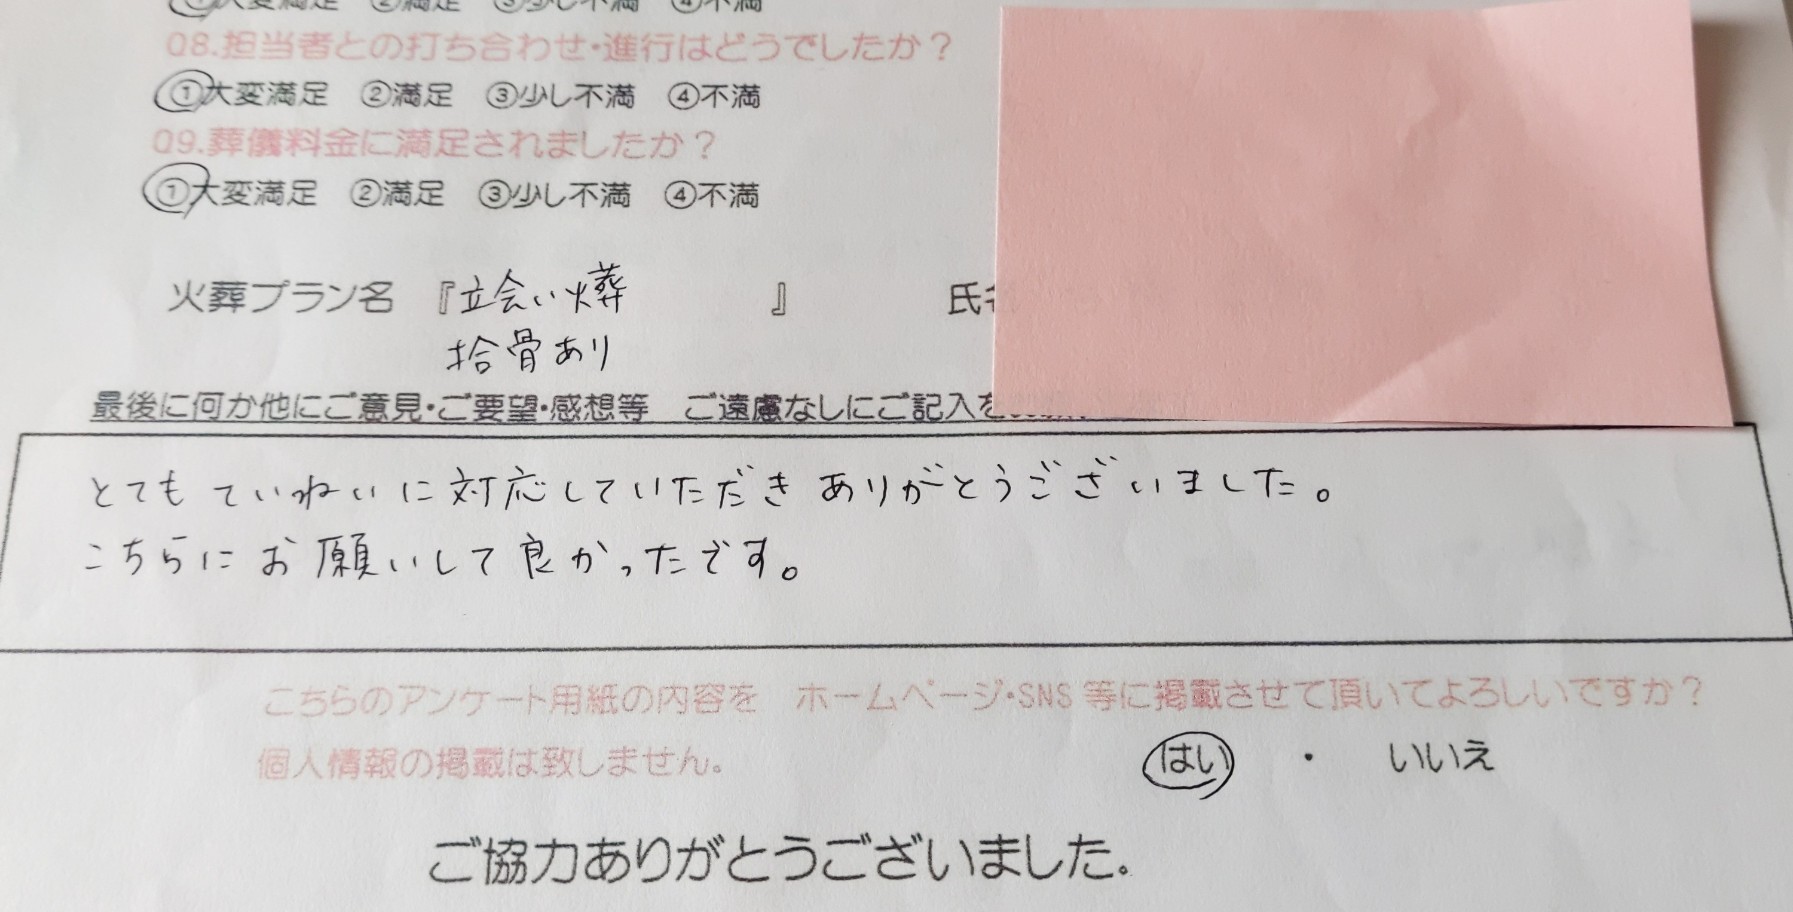 ①大変満足 ②満足 ③少し不満 ④不満
Q8.担当者との打ち合わせ・進行はどうでしたか？
①大変満足 ②満足 ③少し不満 ④不満
Q9.葬儀料金に満足されましたか？
①大変満足 ②満足 ③少し不満 ④不満
火葬プラン名 『立会い火葬 』 氏名
拾骨あり
最後に何か他にご意見・ご要望・感想等 ご遠慮なしにご記入を
とてもていねいに対応していただきありがとうございました。
こちらにお願いして良かったです。
こちらのアンケート用紙の内容を ホームページ・SNS 等に掲載させて頂いてよろしいですか？
個人情報の掲載は致しません。 はい ・ いいえ
ご協力ありがとうございました。